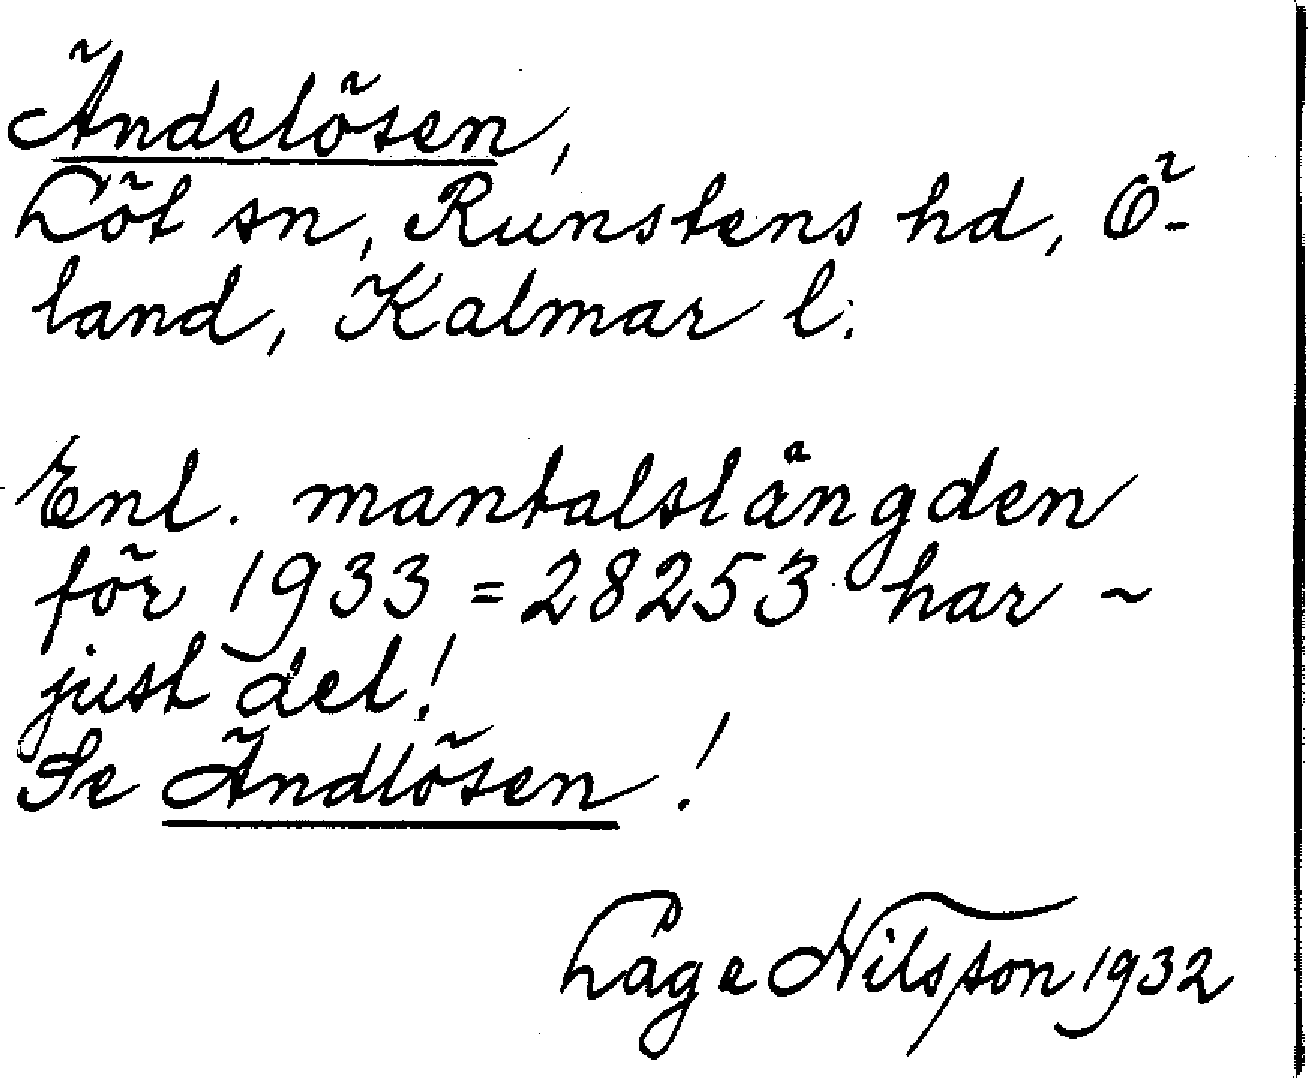 Ändelösen,
Löt sn, Runstens hd, Ö-
land, Kalmar l:
Enl. mantalslängden
för 1933 = 28253 har ~
just del!
Se Ändlösen!
Lage Nilsson 1932